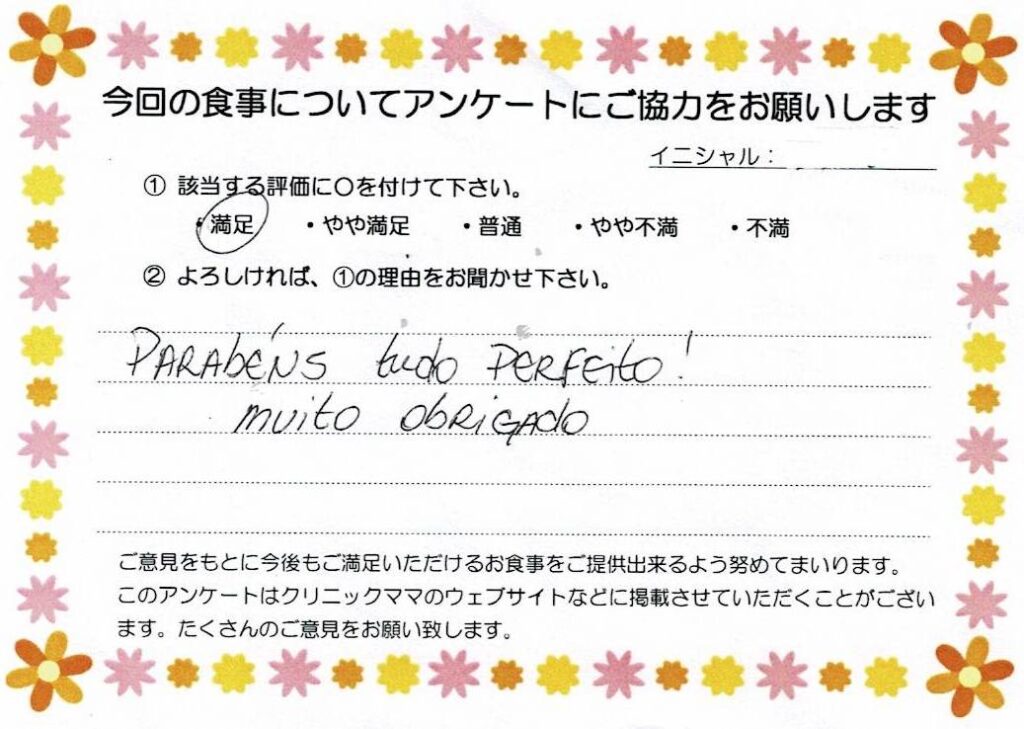 今回の食事についてアンケートにご協力をお願いします
イニシャル：
① 該当する評価に〇を付けて下さい。
・満足 ・やや満足 ・普通 ・やや不満 ・不満
② よろしければ、①の理由をお聞かせ下さい。
PARAbÉNS tudo PERFEito!
muito obRiGAdo
ご意見をもとに今後もご満足いただけるお食事をご提供出来るよう努めてまいります。
このアンケートはクリニックママのウェブサイトなどに掲載させていただくことがござい
ます。たくさんのご意見をお願い致します。